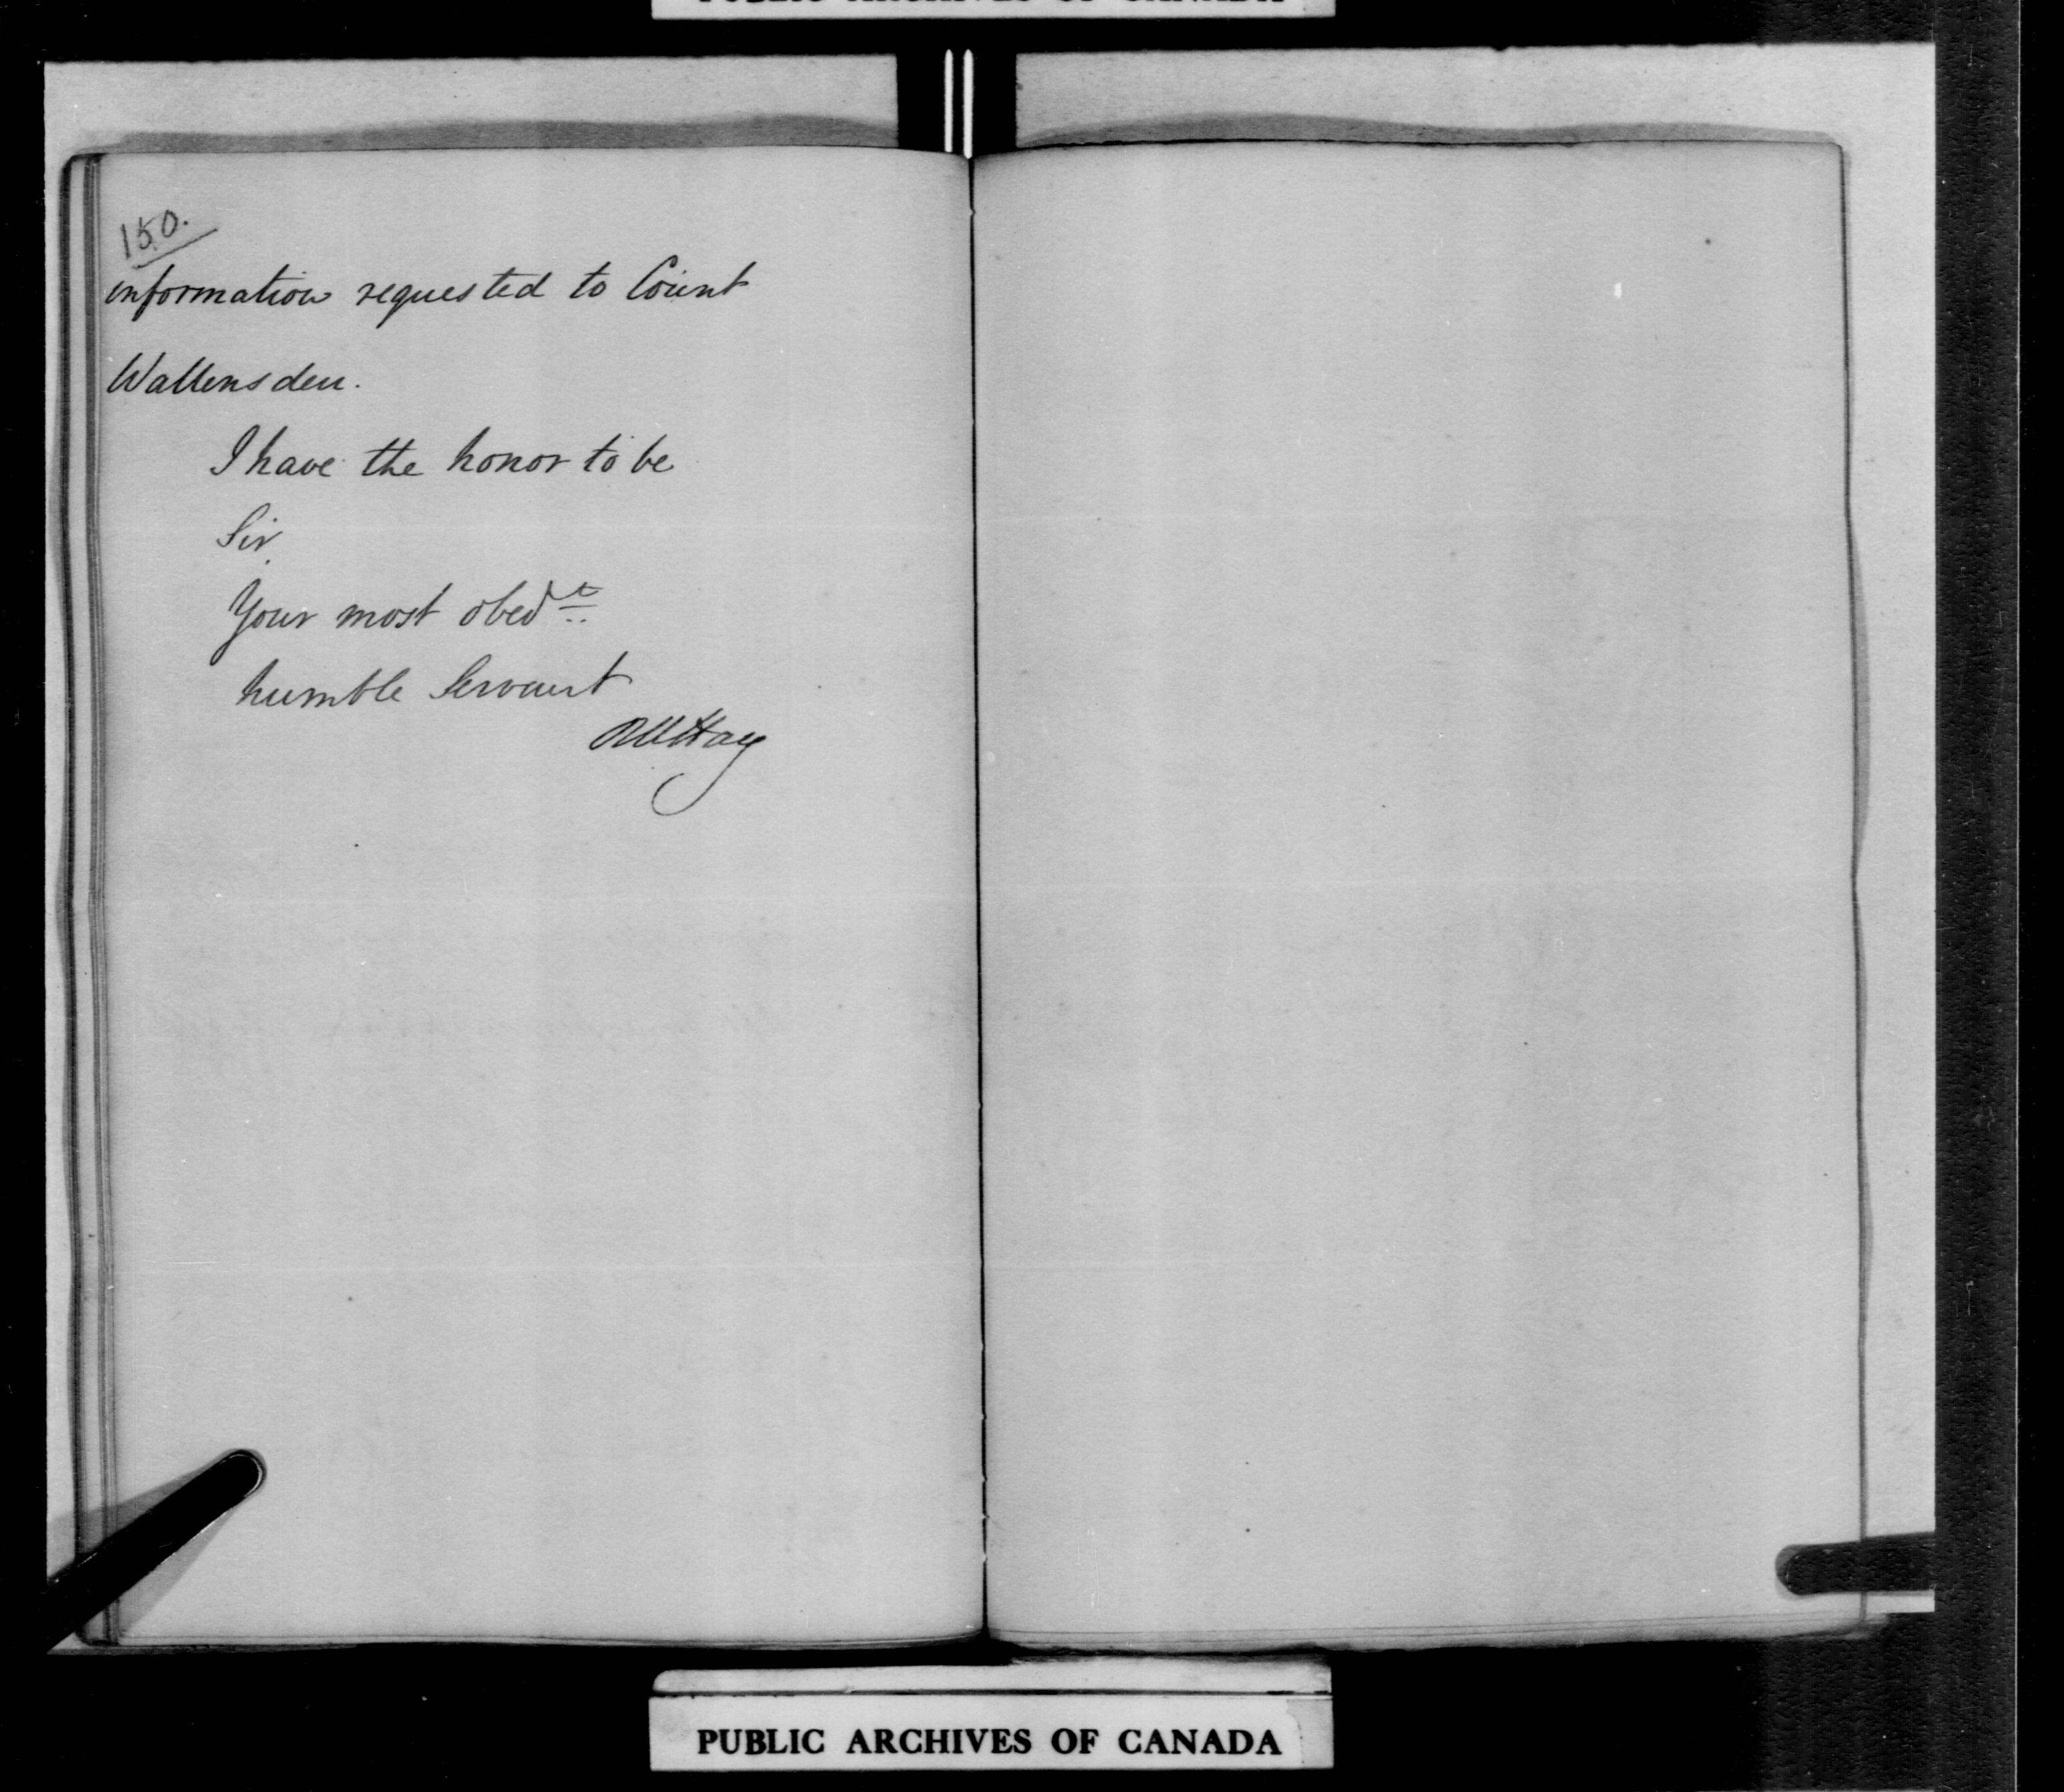 PUBLIC ARCHIVES OF CANADA
150.
information requested to Count
Wallensden.
I have the honor to be
Sir
Your most obedt
humble Servant
RWHay
PUBLIC ARCHIVES OF CANADA